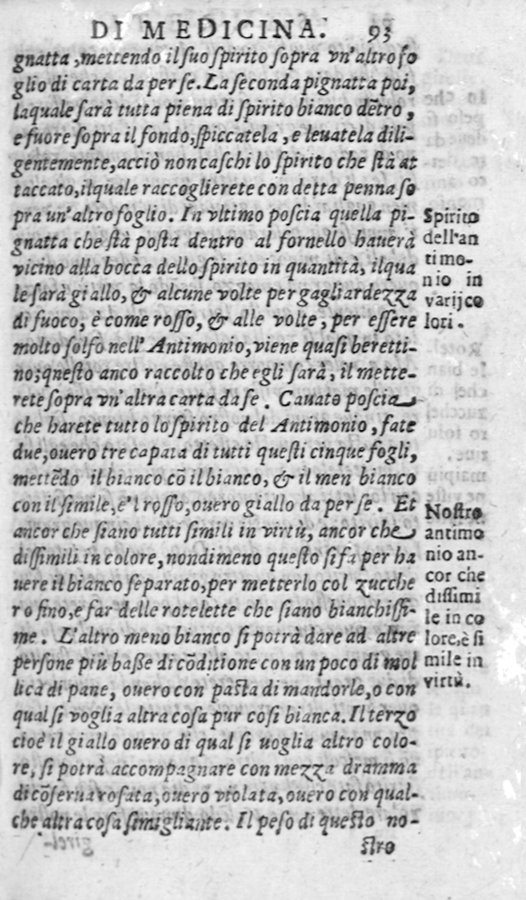 DI MEDICINA. 93
gnatta, mettendo il suo spirito sopra vn'altro fo
glio di carta da per se. La seconda pignatta poi,
laquale sarà tutta piena di spirito bianco dẽtro,
e fuore sopra il fondo, spiccatela, e leuatela dili-
gentemente, acciò non caschi lo spirito che stà at
taccato, ilquale raccoglierete con detta penna so
pra un'altro foglio. In vltimo poscia quella pi-
gnatta che stà posta dentro al fornello hauerà
vicino alla bocca dello spirito in quantità, ilqua
le sarà giallo, & alcune volte per gagliardezza
di fuoco, è come rosso, & alle volte, per essere
molto solfo nell'Antimonio, viene quasi beretti-
no; questo anco raccolto che egli sarà, il mette-
rete sopra vn'altra carta da se. Cauato poscia
che harete tutto lo spirito del Antimonio, fate
due, ouero tre capata di tutti questi cinque fogli,
mettẽdo il bianco cõ il bianco, & il men bianco
con il simile, e'l rosso, ouero giallo da per se. Et
ancor che siano tutti simili in virtù, ancor che
dissimili in colore, nondimeno questo si fa per ha
uere il bianco separato, per metterlo col zucche
ro fino, e far delle rotelette che siano bianchissi-
me. L'altro meno bianco si potrà dare ad altre
persone più basse di cõditione con un poco di mol
lica di pane, ouero con pasta di mandorle, o con
qual si voglia altra cosa pur cosi bianca. Il terzo
cioè il giallo ouero di qual si uoglia altro colo-
re, si potrà accompagnare con mezza dramma
di cõserua rosata, ouero violata, ouero con qual-
che altra cosa simigliante. Il peso di questo no-
stro
Spirito
dell'an
timo-
nio in
varij co
lori.
Nostro
antimo
nio an-
cor che
dissimi
le in co
lore, è si
mile in
virtù.